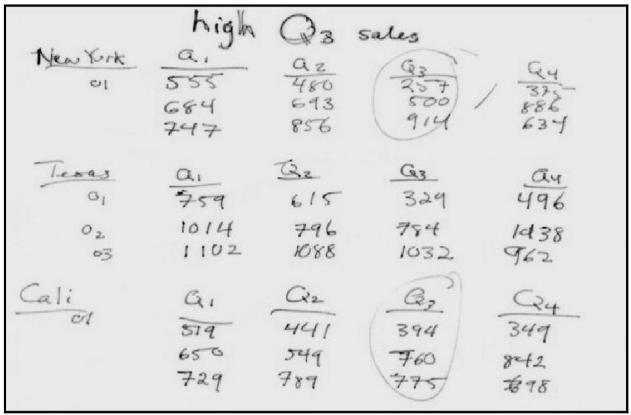 high Q3 sales
New York Q1 Q2 Q3 Q4
01 555 480 257 375
684 693 500 886
747 856 914 634
Texas Q1 Q2 Q3 Q4
01 759 615 329 496
02 1014 796 784 1038
03 1102 1088 1032 962
Cali Q1 Q2 Q3 Q4
01 519 441 394 349
650 549 760 842
729 789 775 698